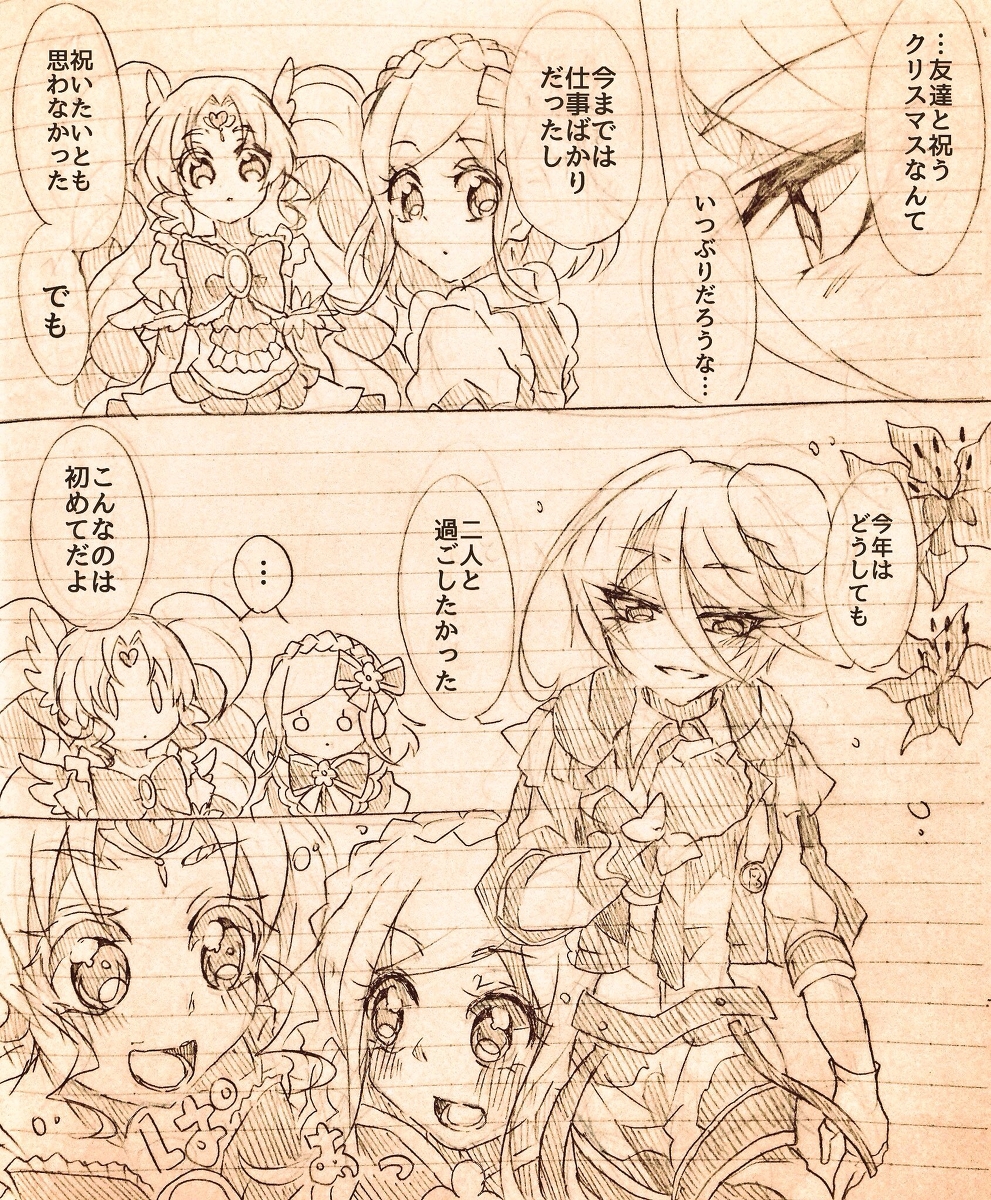 …友達と祝う
クリスマスなんて
いつぶりだろうな…
今までは
仕事ばかり
だったし
祝いたいとも
思わなかった
でも
今年は
どうしても
二人と
過ごしたかった
…
こんなのは
初めてだよ
ぱぁ
ぱぁっ